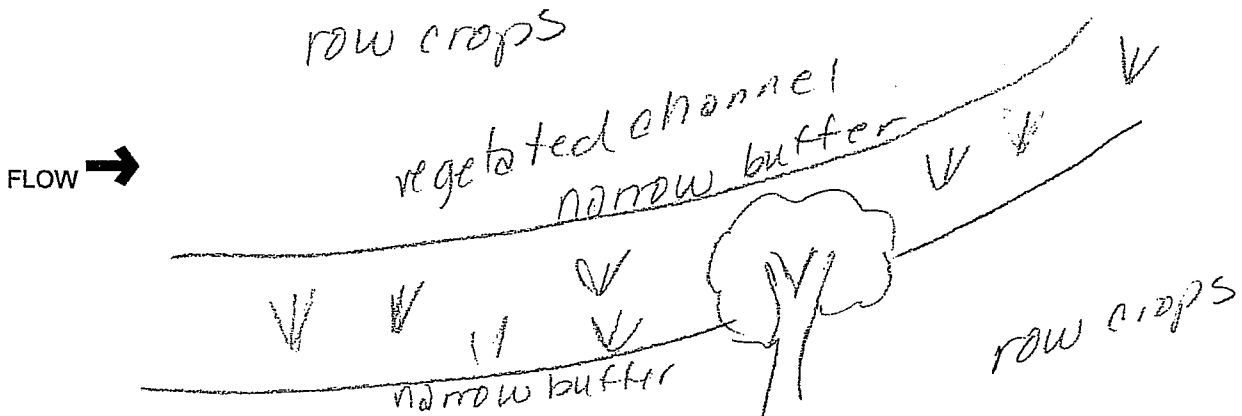 row crops
vegetated channel
narrow buffer
FLOW
narrow buffer
row crops